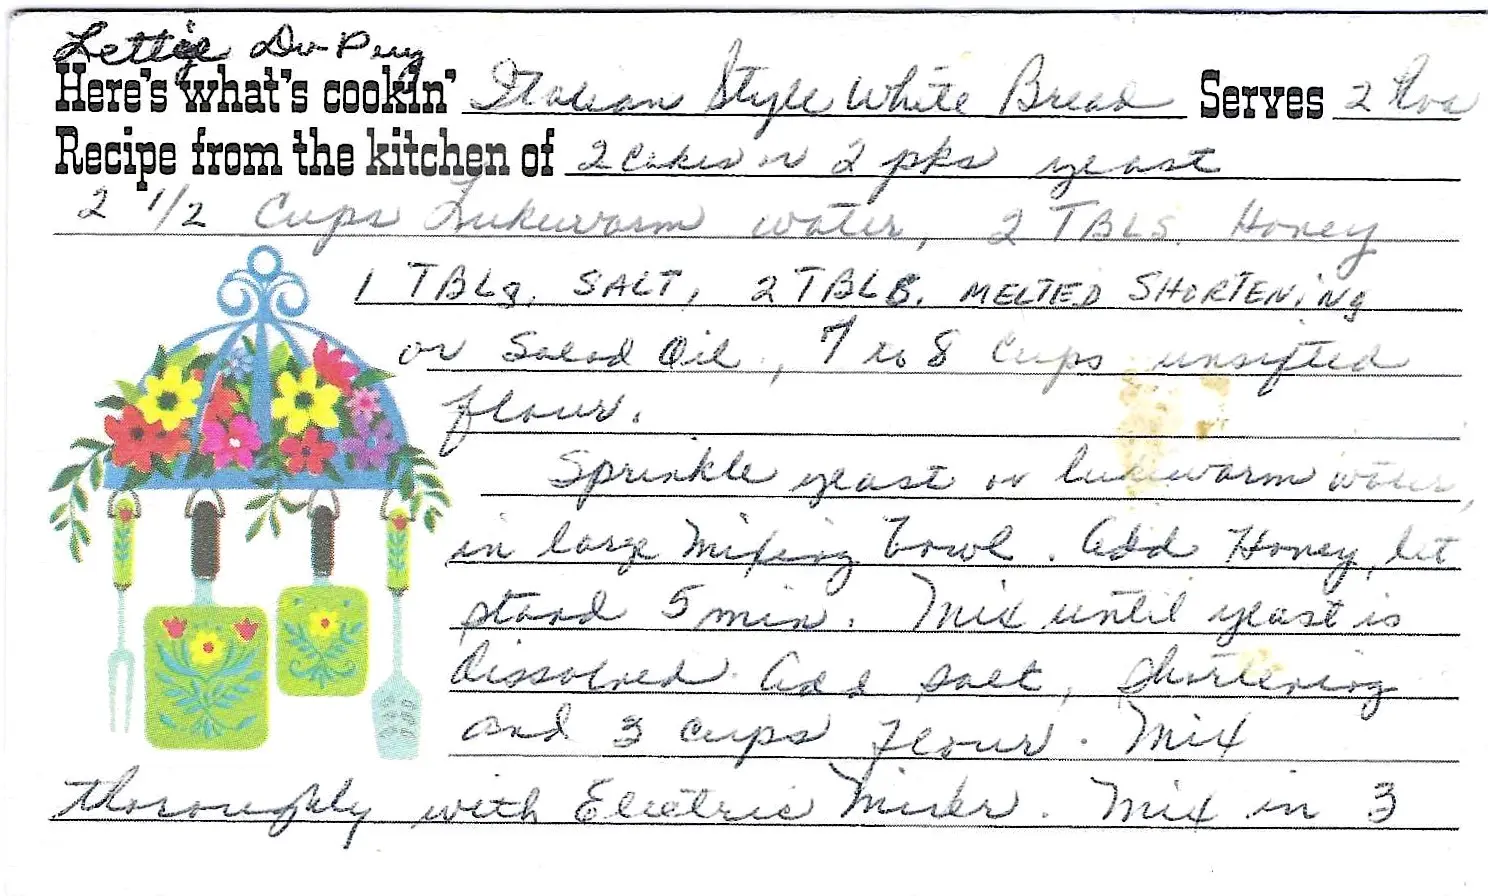 Lettie Du Puy
Here's what's cookin' Italian Style White Bread Serves 2 Loa
Recipe from the kitchen of 2 cakes or 2 pks yeast
2 1/2 Cups Lukewarm water, 2 TBLS. Honey
1 TBLS. SALT, 2 TBLS. MELTED SHORTENiNg
or Salad Oil, 7 to 8 Cups unsifted
flour.
Sprinkle yeast or lukewarm water,
in large Mixing bowl. Add Honey, let
stand 5 min. Mix until yeast is
dissolved. Add salt, shortening
and 3 cups flour. Mix
thoroughly with Electric Mixer. Mix in 3